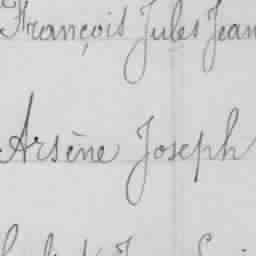 François Jules Jean
Arsène Joseph